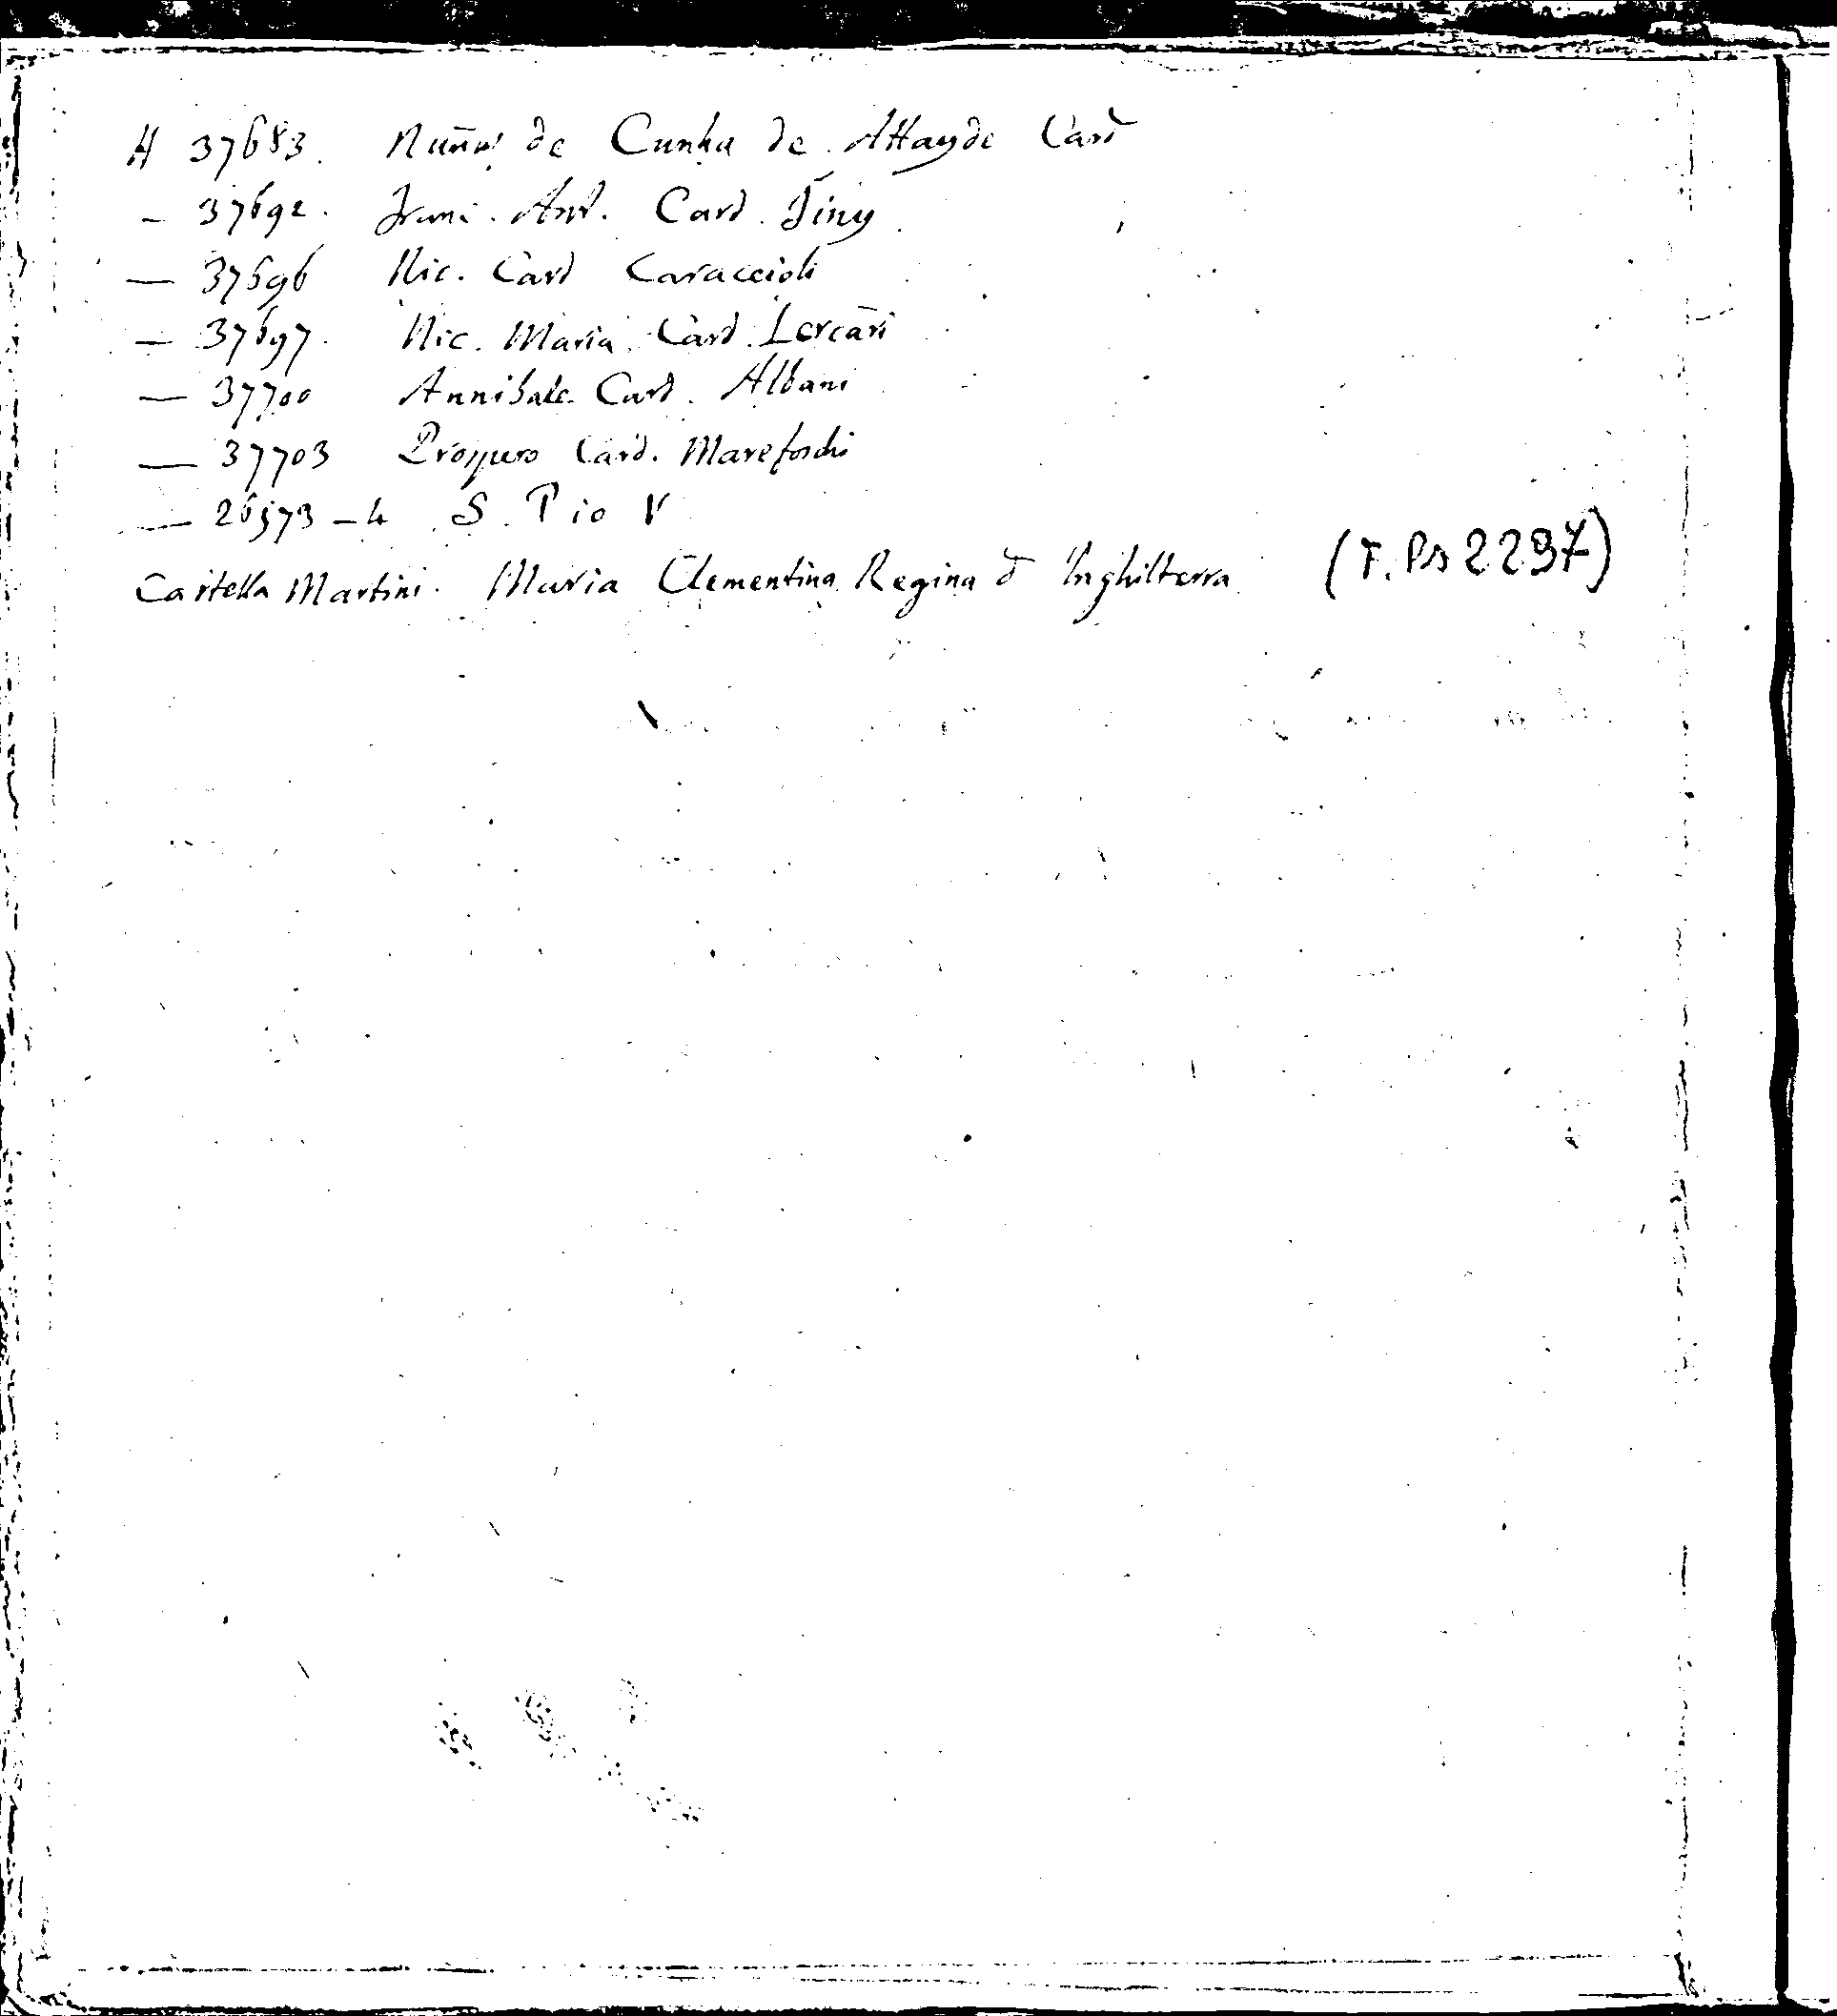 A 37683. Nuñus de Cunha de Attayde Card
– 37692. Franc. Ant. Card. Finy
— 37696 Nic. Card Caraccioli
— 37697. Nic. Maria Card. Lercari
— 37700 Annibale Card. Albani
— 37703 Prospero Card. Marefoschi
— 26573–4 S. Pio V
Cartella Martini. Maria Clementina Regina d'Inghilterra (F.PN 2297)